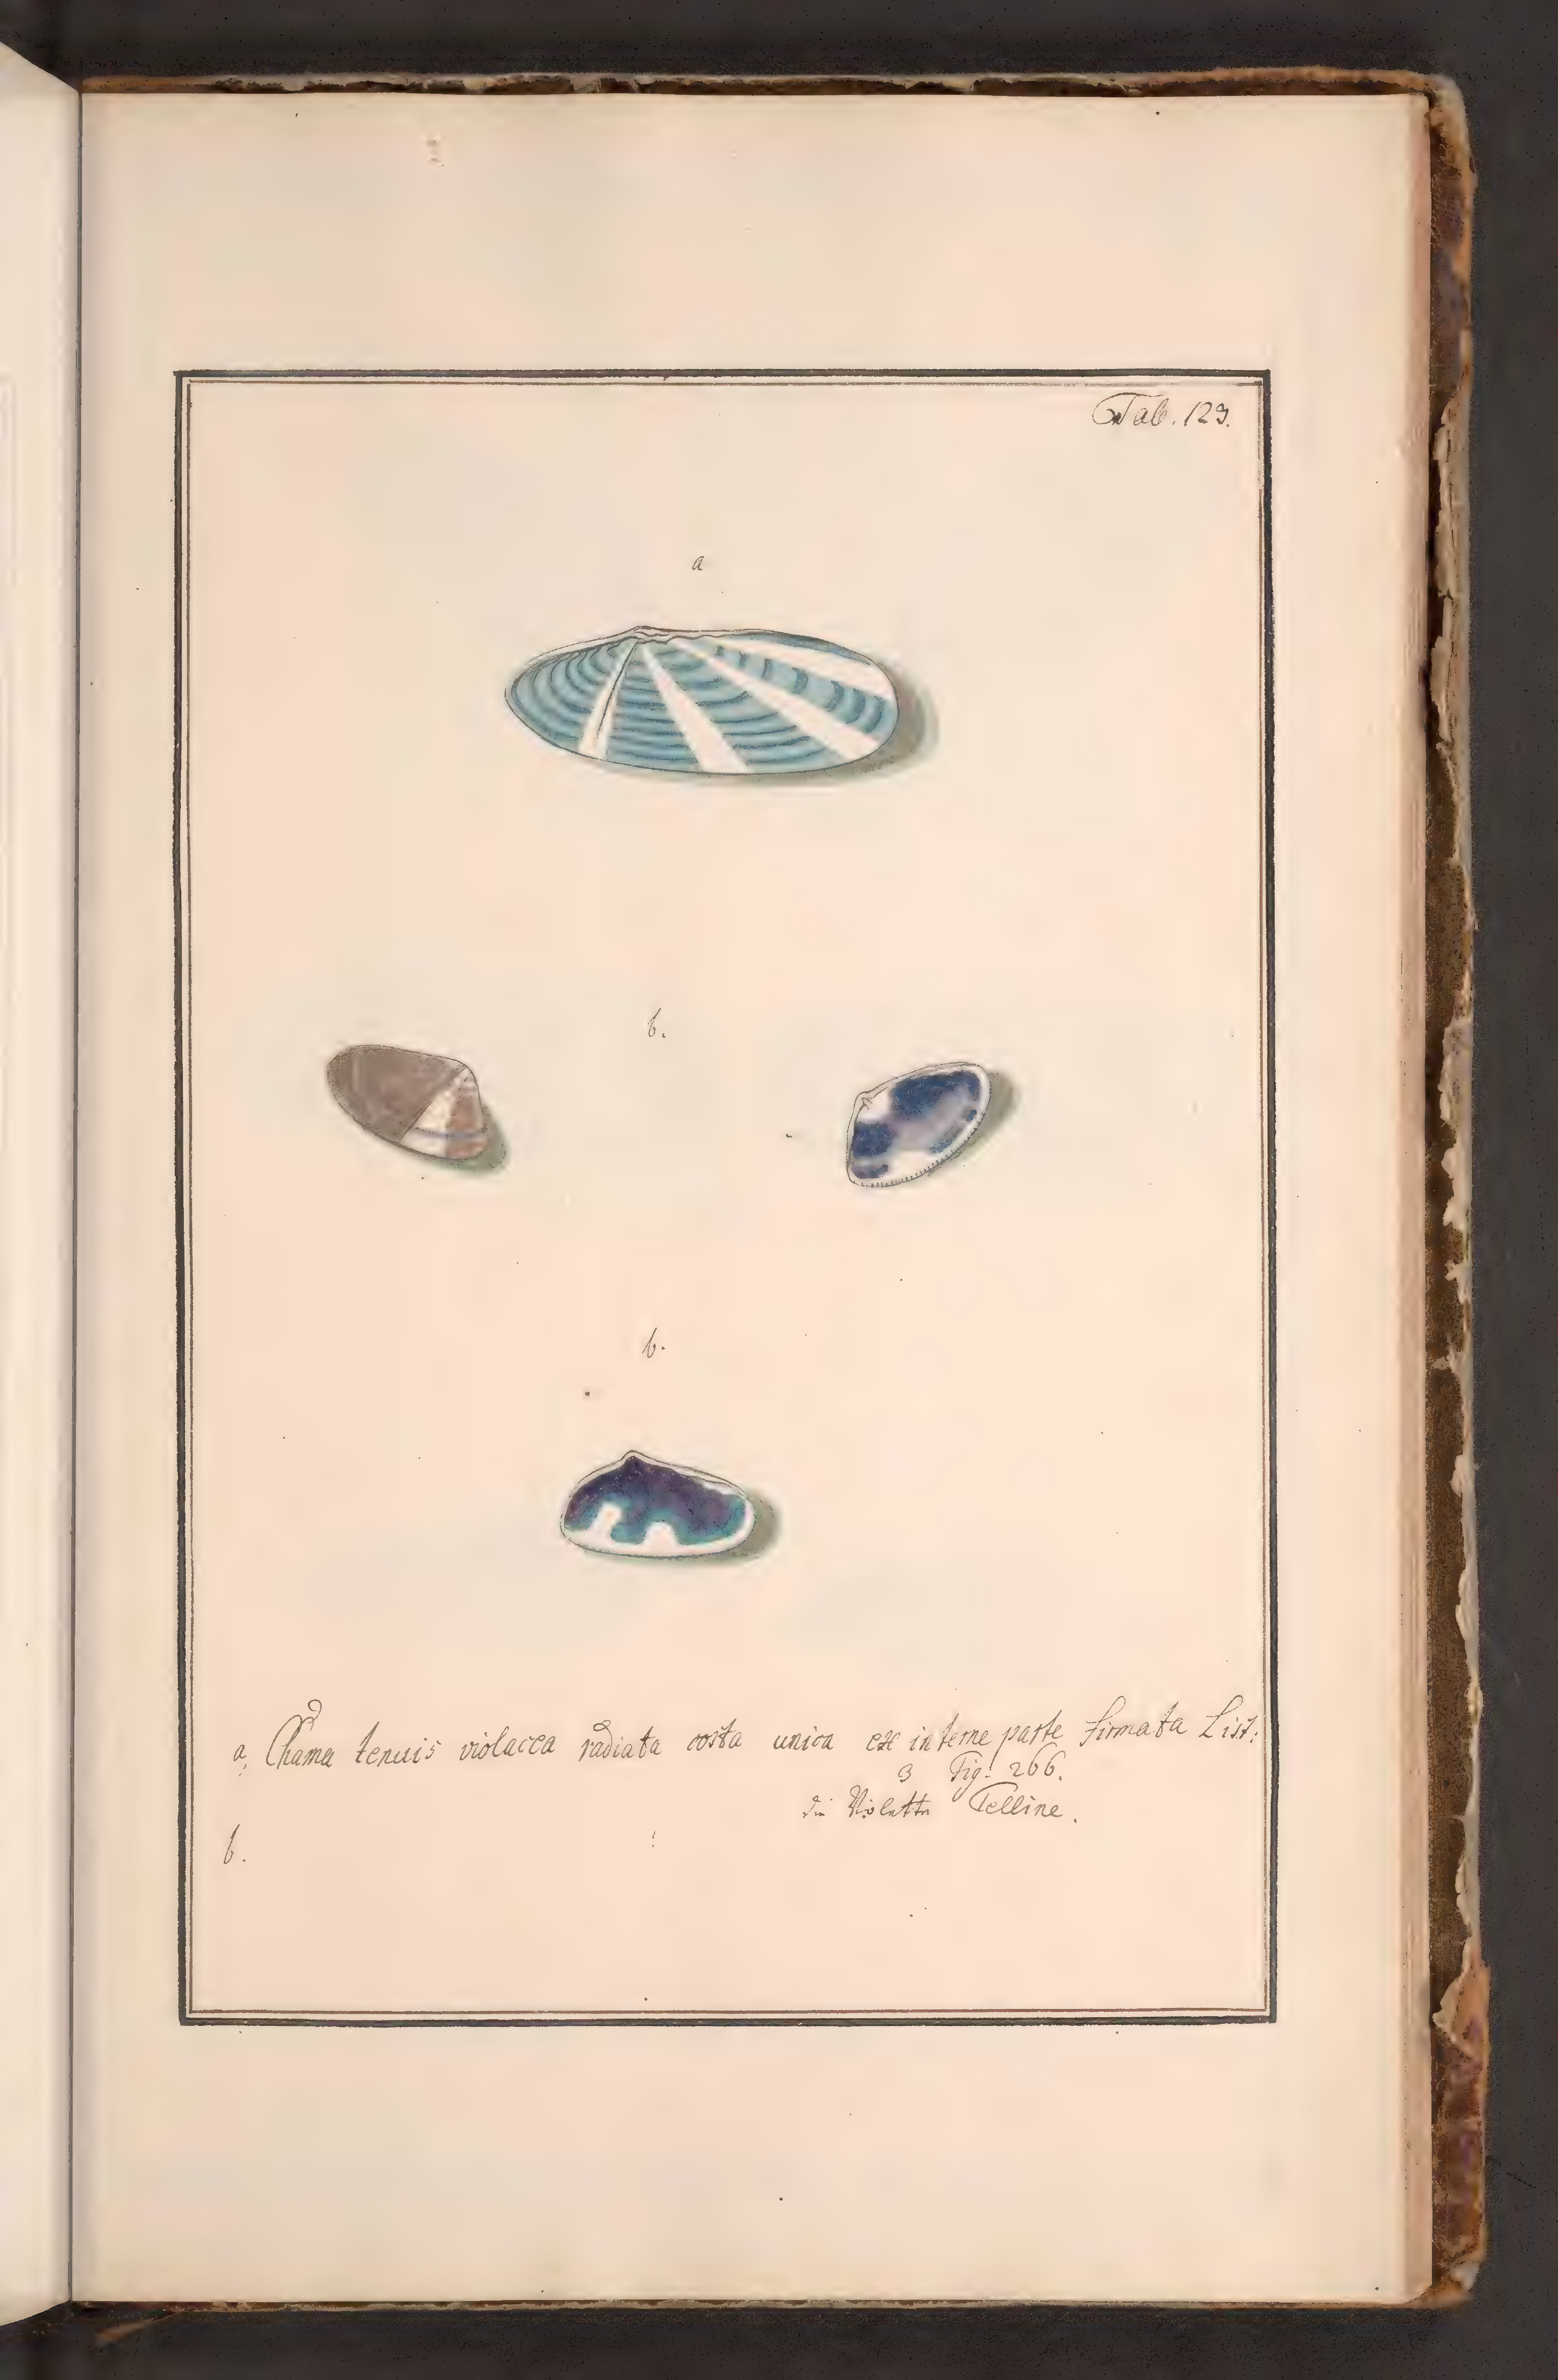 Tab. 129.
a
b.
b.
a, Chama tenuis violacea radiata costa unica ex interne parte firmata List:
3 Fig: 266.
die Violette Telline.
b.